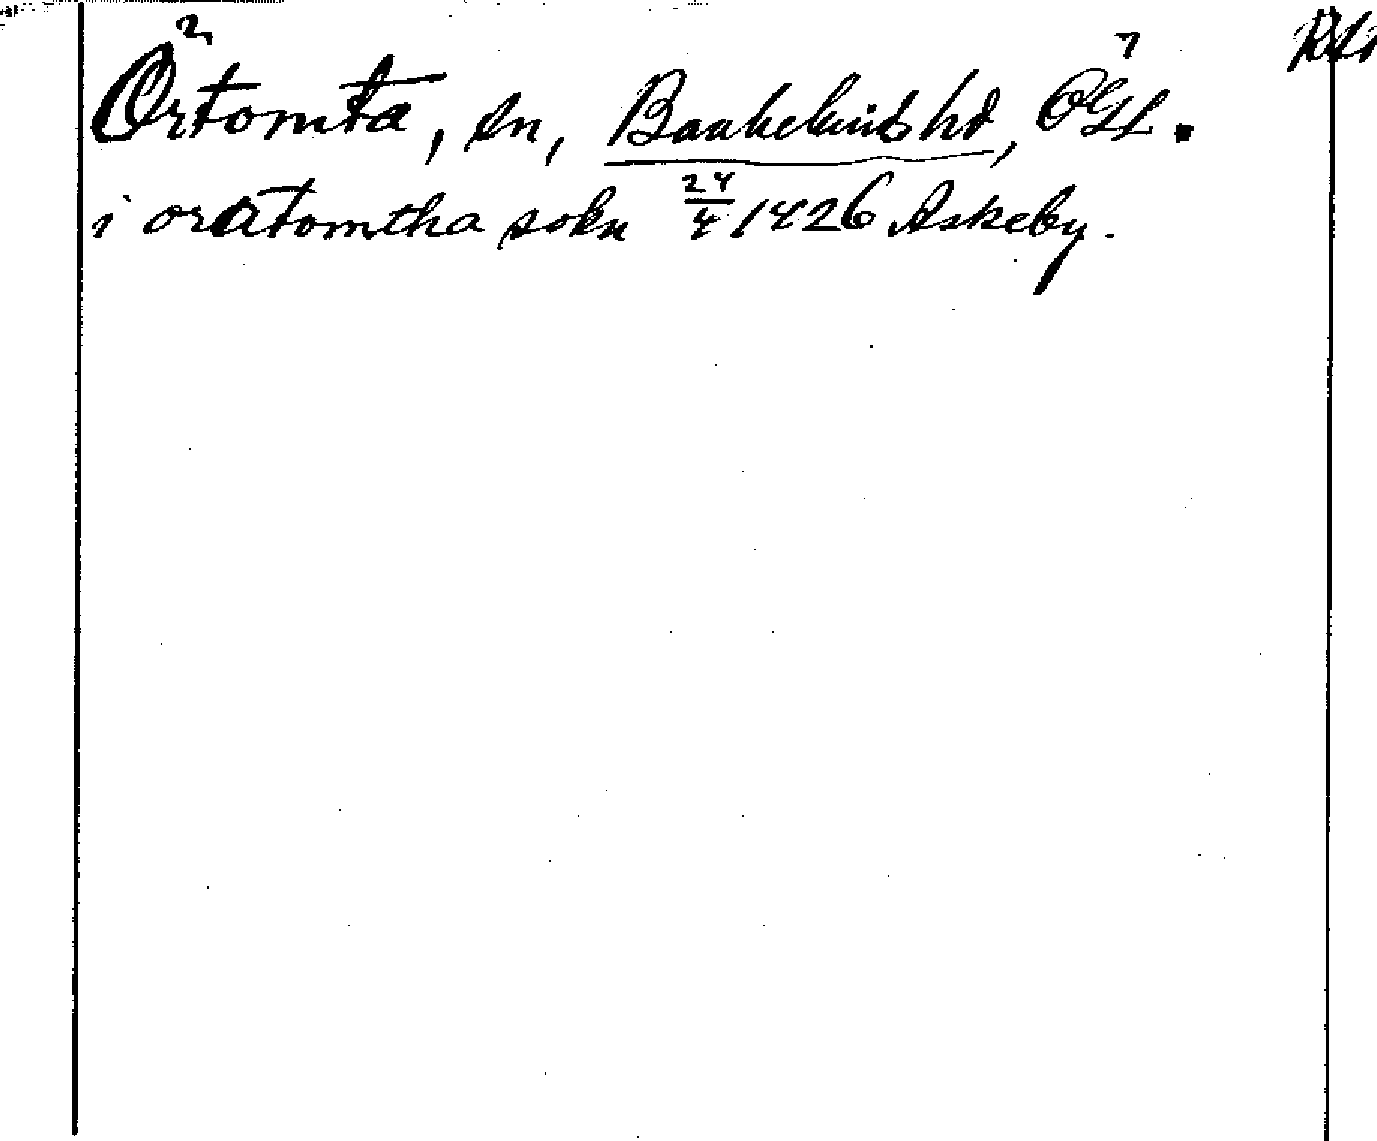 Örtomta, sn, Bankekinds hd, ÖGL.
i oratomtha sokn 24/4 1426 Askeby.